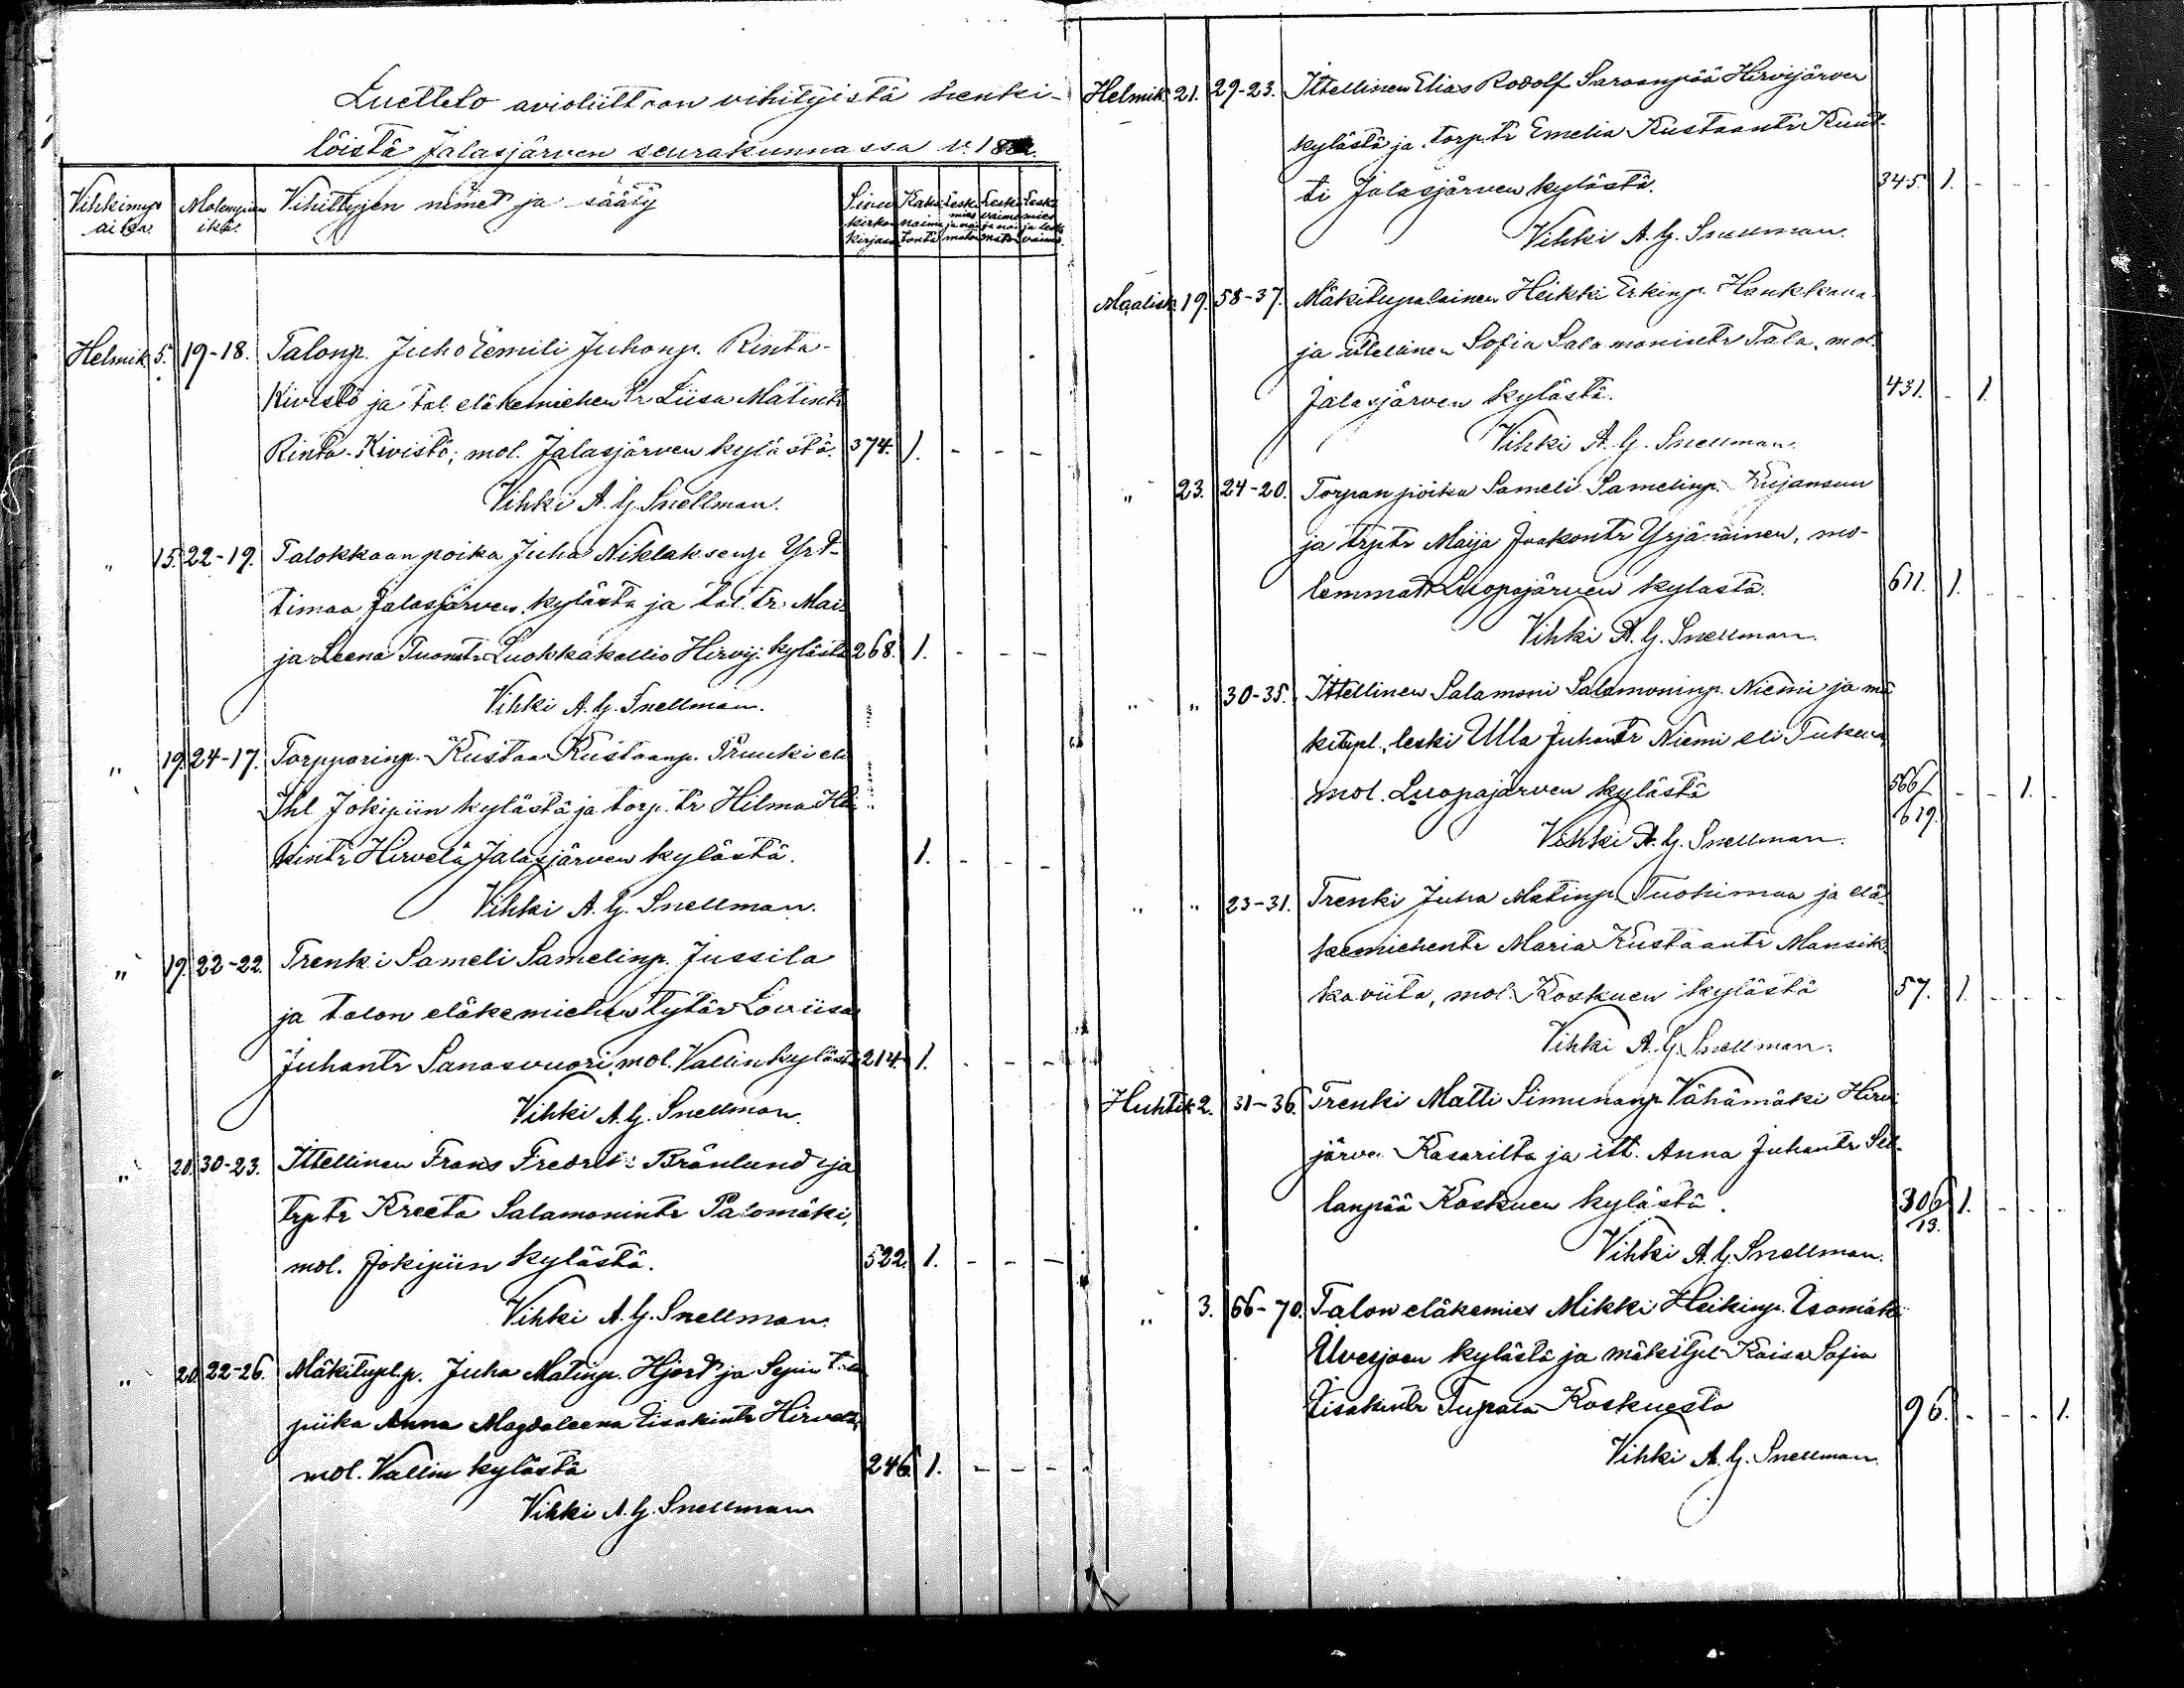 Luettelo avioliittoon vihityistä henki-
löistä Jalasjärven seurakunnassa v. 1882.
Vihkimys aika. Molempien ikä. Vihittyjen nimet ja sääty Sivu kirkon kirjassa Kaksi naima tonta Leski mies ja nai maton Leski vaimo ja nai maton Leski mies ja leski vaimo.
Helmik. 5. 19-18. Talonp. Juho Eemili Juhonp. Rinta-
Kivistö ja tal. eläkemiehen tr Liisa Matintr
Rinta-Kivistö; mol. Jalasjärven kylästä. 374. 1. - - -
Vihki A. G. Snellman.
" 15. 22-19. Talokkaan poika Juha Niklaksenp Yrt-
timaa Jalasjärven kylästä ja tal. tr. Mai-
ja Leena Tuomtr Luokkakallio Hirvij. kylästä 268. 1. - - -
Vihki A. G. Snellman.
" 19. 24-17. Torpparinp. Kustaa Kustaanp. Pruuki eli
Ihl Jokipiin kylästä ja torp. tr Hilma Hei
kintr Hirvelä Jalasjärven kylästä. 1. - - -
Vihki A. G. Snellman.
" 19. 22-22. Trenki Sameli Samelinp. Jussila
ja talon eläkemiehen tytär Loviisa
Juhantr Sanasvuori, mol. Vallin kylästä 214. 1. - - -
Vihki A. G. Snellman.
" 20. 30-23. Ittellinen Frans Fredrik Brönlund ja
trptr Kreeta Salamonintr Palomäki,
mol. Jokipiin kylästä. 522. 1. - - -
Vihki A. G. Snellman.
" 20. 22-26. Mäkitupl.p. Juha Matinp. Hjort ja Sepin
piika Anna Magdaleena Eisakintr Hirvelä,
mol. Vallin kylästä 246. 1. - - -
Vihki A. G. Snellman
Helmik. 21. 29-23. Ittellinen Elias Rodolf Saraanpää Hirvijärven
kylästä ja torp. tr Emelia Kustaantr Kuut-
ti Jalasjärven kylästä. 345. 1. - - -
Vihki A. G. Snellman.
Maalisk. 19. 58-37. Mäkitupalainen Heikki Erkinp. Hankkana-
ja ittellinen Sofia Salamonintr Tala, mol.
Jalasjärven kylästä. 431. - 1.
Vihki A. G. Snellman.
" 23. 24-20. Torpan poika Sameli Samelinp. Kujansuu
ja trptr Maija Jaakontr Yrjänäinen, mo-
lemmat Luopajärven kylästä. 611. 1. - - -
Vihki A. G. Snellman.
" " 30-35. Ittellinen Salamoni Salamoninp. Niemi ja mä
kitupl. leski Ulla Juhantr Niemi eli
mol. Luopajärven kylästä 566/ - - 1. -
619.
Vihki A. G. Snellman.
" " 23-31. Trenki Juha Matinp. Tuohimaa ja elä-
kemiehentr Maria Kustaantr Mansik-
kaviita, mol. Koskuen kylästä 57. 1. - - -
Vihki A. G. Snellman.
Huhtik 2. 31-36. Trenki Matti Simunanp Vähämäki Hirvi
järven Kasarilta ja itt. Anna Juhantr Sil-
lanpää Koskuen kylästä. 306/ 1. - - -
13.
Vihki A. G. Snellman.
" 3. 66-70. Talon eläkemies Mikki Heikinp. Isomäki
Ilvesjoen kylästä ja mäkitpl Kaisa Sofia
Eisakintr Tupala Koskuesta 96. - - - 1.
Vihki A. G. Snellman.